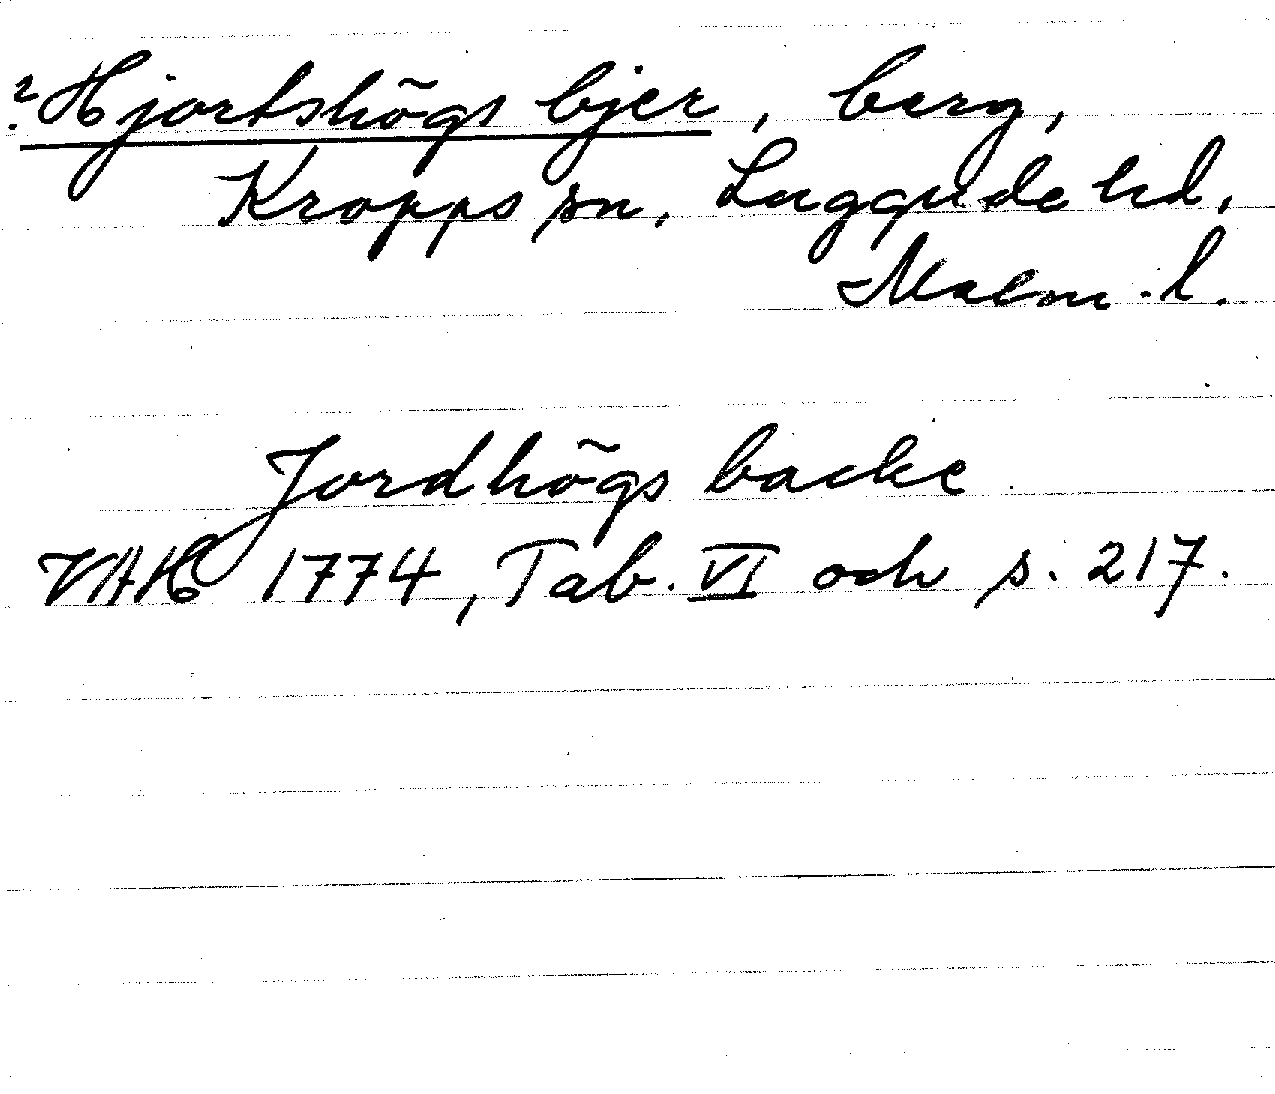 ? Hjortshögs bjer, berg,
Kropps sn, Luggude hd,
Malm. l.
Jordhögs backe
VAH 1774, Tab. VI och s. 217.